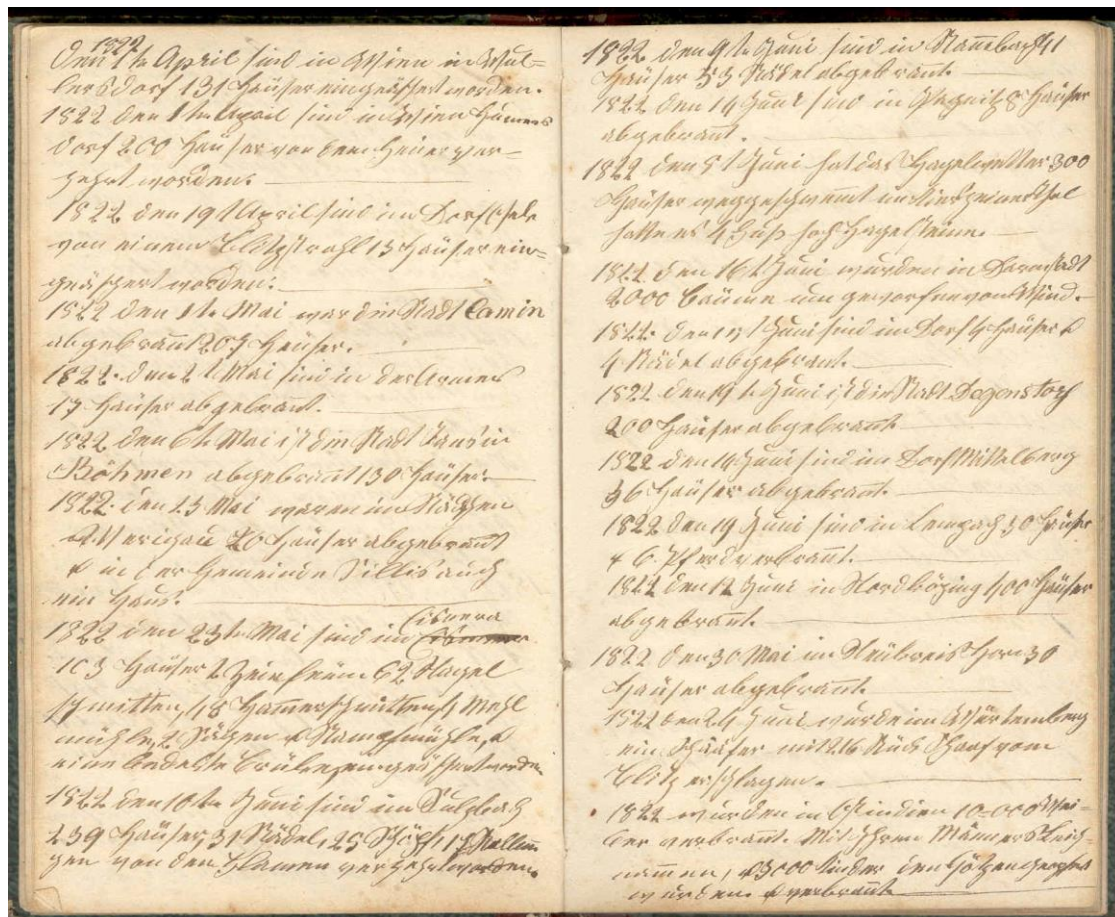 1822
den 1t April sind in Wien in Wul=
lersdorf 131 Häuser eingeäschert worden.
1822 den 1te April sind in Wien Hamers
dorf 200 Häuser von dem Feuer ver=
zehrt worden.
1822 den 19t April sind im Dorf
von einem Blitzstrahl 13 Häuser ein=
geäschert worden.
1822 den 1te Mai war die Stadt Camin
abgebrant 207 Häuser.
1822. den 2t Mai sind in
17 Häuser abgebrant.
1822 den 6te Mai ist die Stadt in
Böhmen abgebrant 130 Häuser.
1822. den 23 Mai waren im
20 Häuser abgebrant
in der Gemeinde Tillis auch
ein Haus.
Cisnera
1822 den 23te Mai sind in
103 Häuser 62 Nagel
schmitten, 48 Hammerschmitten, 4 Mehl
mühle, 2 Sägen
eine bedekte Brüke eingeäschert worden
1822 den 10te Juni sind im Sulzbach
239 Häuser, 31 Städel, 25 15 Stallun
gen von den Flamen verzehrt worden.
1822 den 9te Juni sind in 41
Häuser 53 Städel abgebrant.
1822 den 14 Juni sind in Pegnitz 8 Häuser
abgebrant.
1822 den 5t Juni hat das Hagelwetter 300
Häuser weggeschwemt
hatte es 4 Fuß hoch Hagelsteine.
1822. den 16t Juni wurden in Darmstadt
2000 Bäume um geworfen von Wind.
1822. den Juni sind im Dorf 4 Häuser &
4 Städel abgebrant.
1822 den 19te Juni ist die Stadt Degenstorf
200 Häuser abgebrant
1822 den 19 Juni sind im Dorf Mittelberg
36 Häuser abgebrant.
1822 den 19 Juni sind in 30 Häuser
6. Pferd verbrant.
1822 den 12 Juni in 400 Häuser
abgebrant.
1822 den 30 Mai in 30
Häuser abgebrant.
1822 den 24 Juni wurde im Würtemberg
ein Schäfer mit 216 Stück Schaaf vom
Blitz erschlagen.
1822 wurden in Ostindien 10-000 Wei=
ber verbrant. Mit Ihren Männers Leich=
nammen, & 3000 Kinder den Götzen geopfert
wurden & verbrant